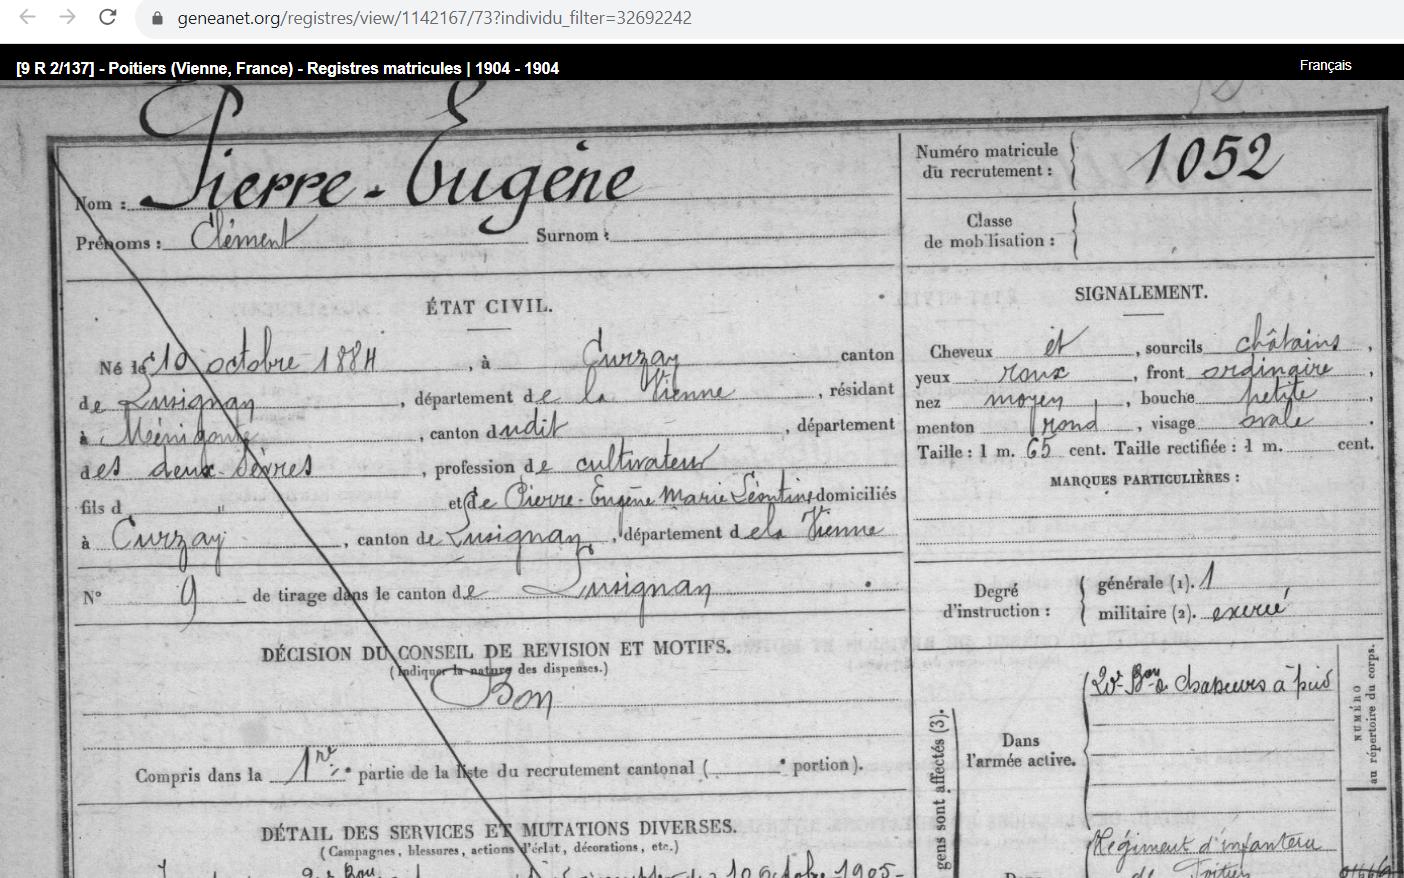 geneanet.org/registres/view/1142167/73?individu_filter=32692242
[9 R 2/137] - Poitiers (Vienne, France) - Registres matricules | 1904 - 1904
Français
Nom : Pierre-Eugène
Prénoms : Clément Surnom :
Numéro matricule du recrutement : 1052
Classe de mobilisation :
ÉTAT CIVIL.
Né le 10 octobre 1884, à Curzay canton
de Lusignan, département de la Vienne, résidant
à Ménigoute, canton dudit, département
des deux-Sèvres, profession de cultivateur
fils d " et de Pierre-Eugène Marie Léontine domiciliés
à Curzay, canton de Lusignan, département de la Vienne
N° 9 de tirage dans le canton de Lusignan.
SIGNALEMENT.
Cheveux et, sourcils châtains,
yeux roux, front ordinaire,
nez moyen, bouche petite,
menton rond, visage ovale.
Taille : 1 m. 65 cent. Taille rectifiée : 1 m. cent.
MARQUES PARTICULIÈRES :
Degré d'instruction :
générale (1). 1
militaire (2). exercé
DÉCISION DU CONSEIL DE REVISION ET MOTIFS.
(Indiquer la nature des dispenses.)
Bon
Compris dans la 1re partie de la liste du recrutement cantonal ( portion).
DÉTAIL DES SERVICES ET MUTATIONS DIVERSES.
(Campagnes, blessures, actions d'éclat, décorations, etc.)
10 octobre 1905-
gens sont affectés (3).
Dans l'armée active.
20e Bon de Chasseurs à pied
NUMÉRO
au répertoire du corps.
Régiment d'infanterie
de Poitiers